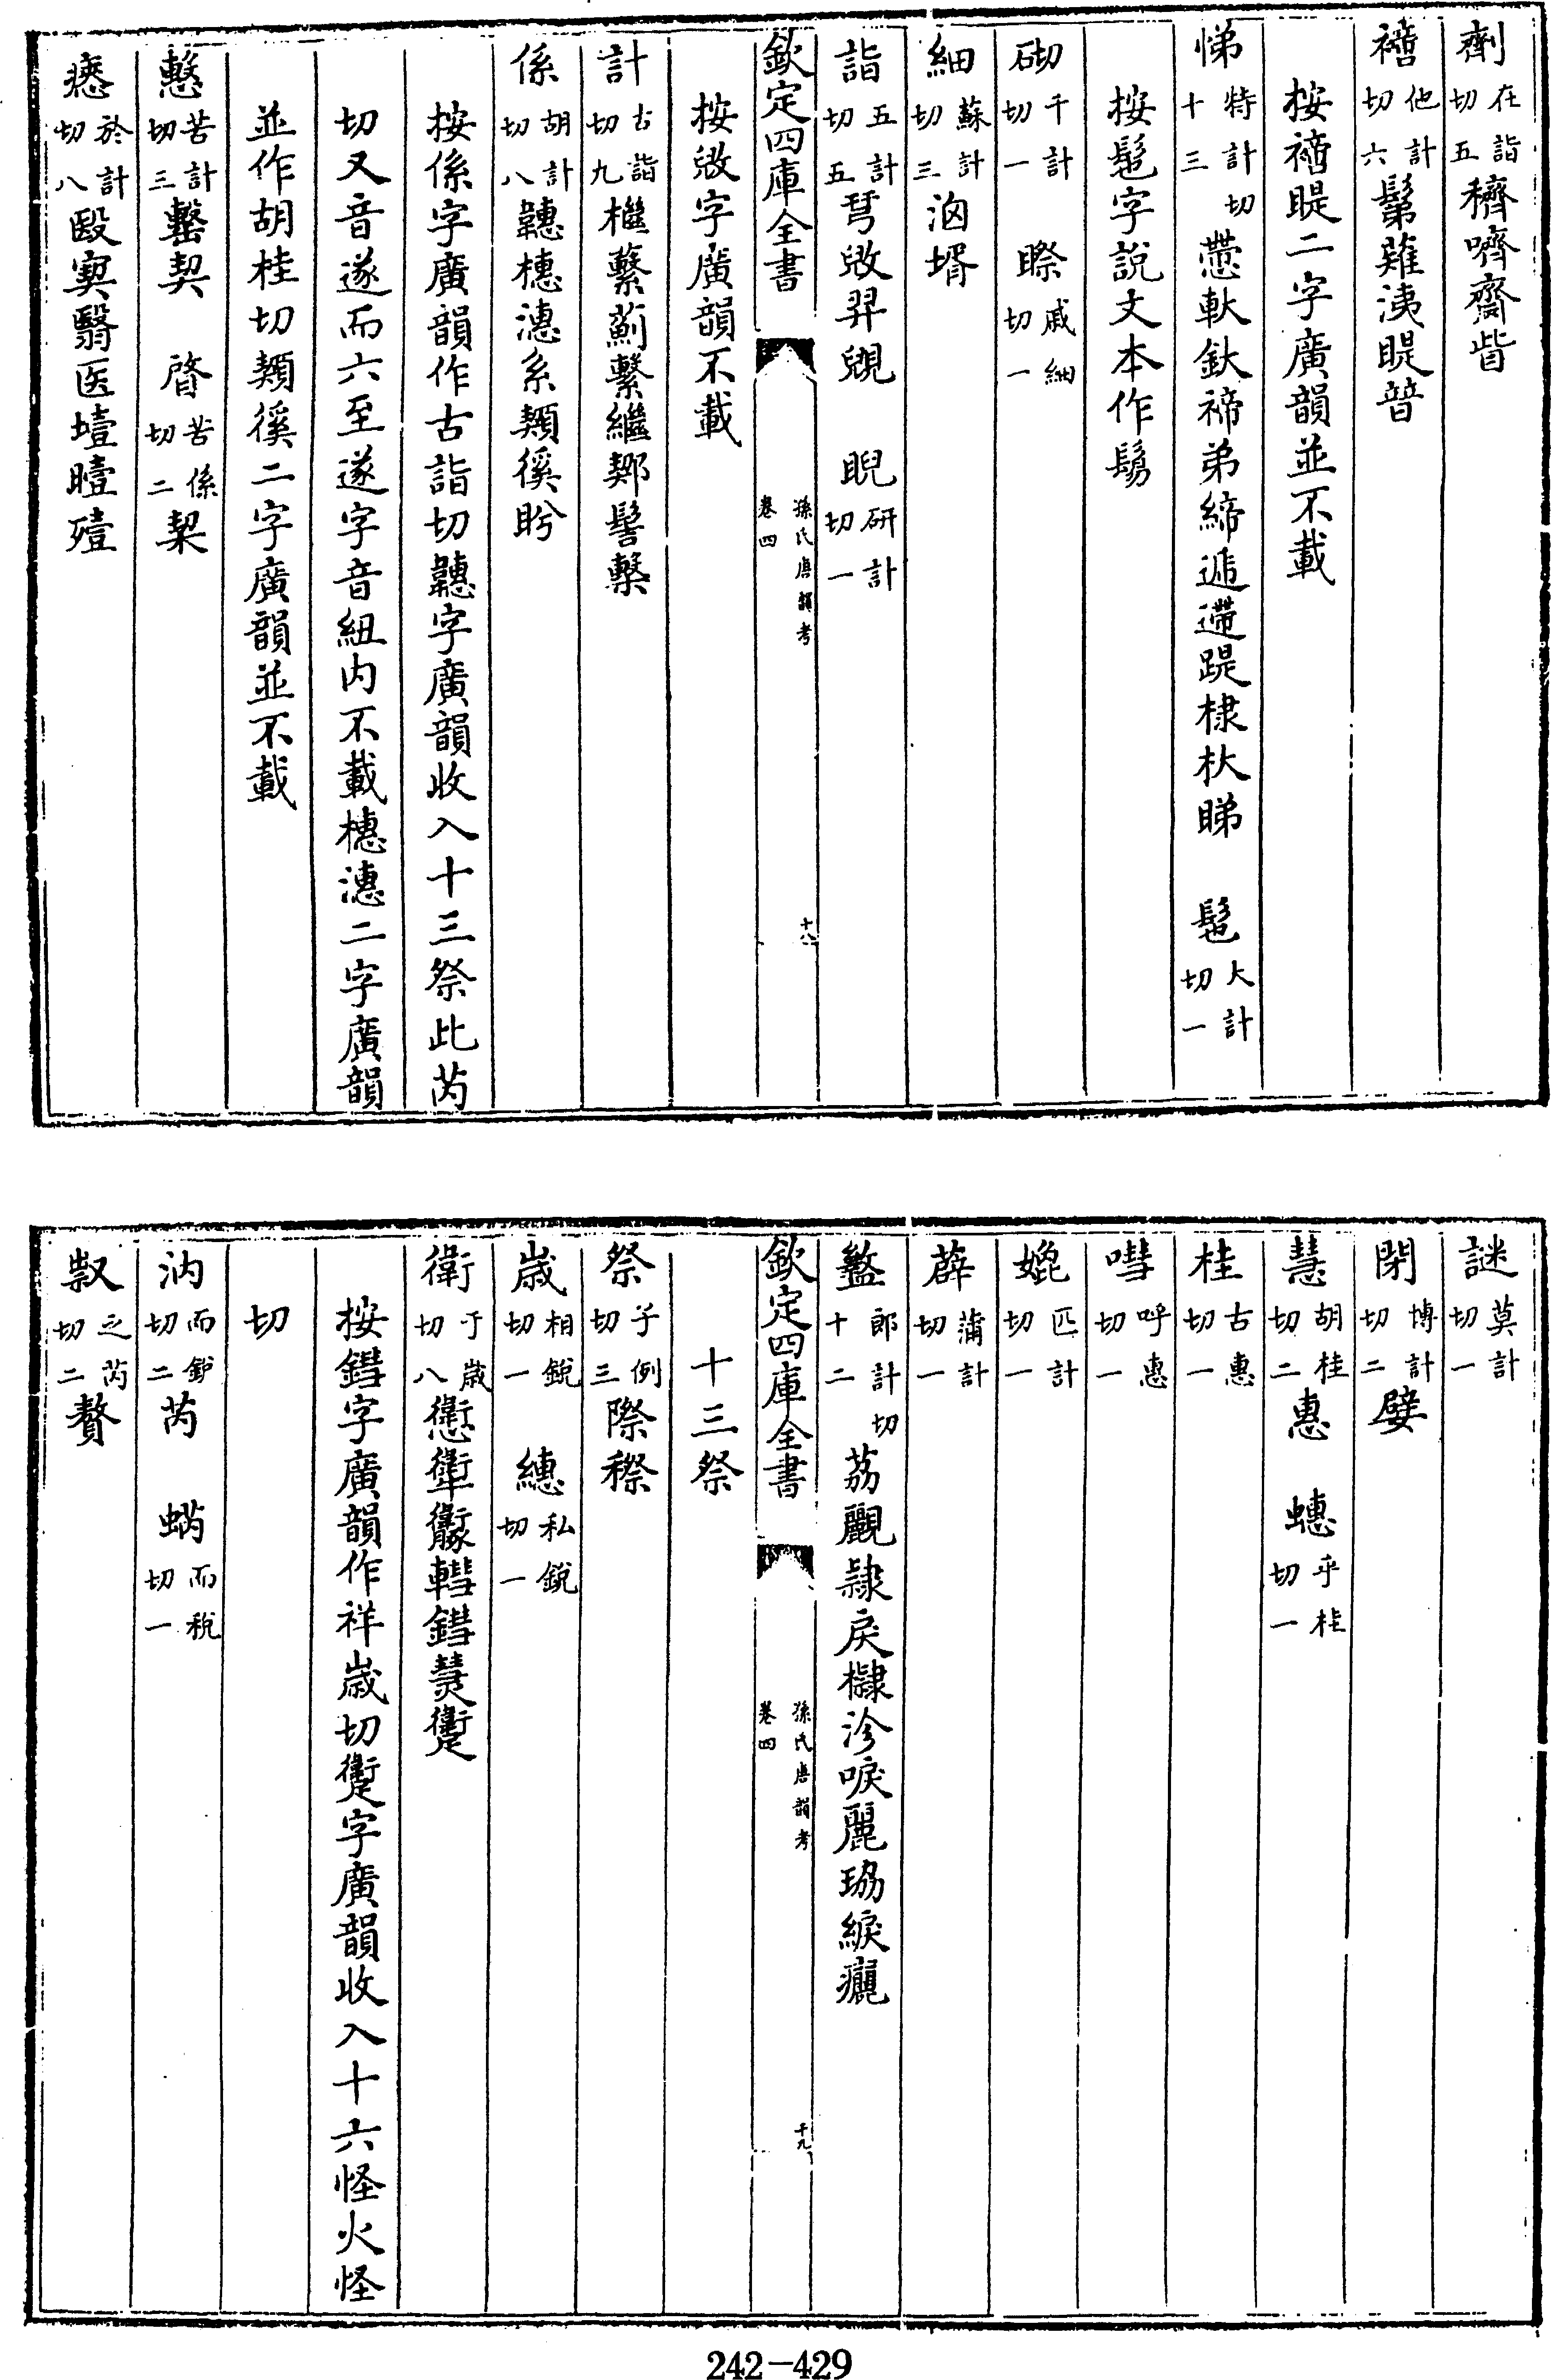 劑在詣切五穧嚌齋眥
䄜他計切六鬀薙洟睼暜
按䄜睼二字廣韻並不載
悌特計切十三懘軑釱禘弟締遞遰踶棣杕睇 髢大計切一
按髢字說文本作鬄
砌千計切一 䁟戚細切一
細蘇計切三 㴙壻
詣五計切五㺿䀳羿䚊 睨研計切一
欽定四庫全書 孫氏唐韻考 卷四 十八
按䀳字廣韻不載
計古詣切九檵蘩薊繫繼鄈髻檕
係胡計切八䡺橞潓系䫔徯盻
按係字廣韻作古詣切䡺字廣韻收入十三祭此芮
切又音遂而六至遂字音紐内不載橞潓二字廣韻
並作胡桂切䫔徯二字廣韻並不載
憠苦計切三罊契 䁈苦係切二栔
瘱於計切八殹㝣翳医㙪曀殪
謎莫計切一
閉博計切二嬖
慧胡桂切二惠 蟪乎桂切一
桂古惠切一
嘒呼惠切一
媲匹計切一
薜蒲計切一
盭郎計切十二荔觀隸戾欚沴唳麗珕綟癘
欽定四庫全書 孫氏唐韻考 卷四 十九
十三祭
祭子例切三際穄
歲相銳切一 繐私銳切一
衛于歲切八㦣𤛿䘙轊鏏熭躗
按鏏字廣韻作祥歲切躗字廣韻收入十六怪火怪
切
汭而銳切二芮 蜹而稅切一
㕞之芮切二贅
242-429